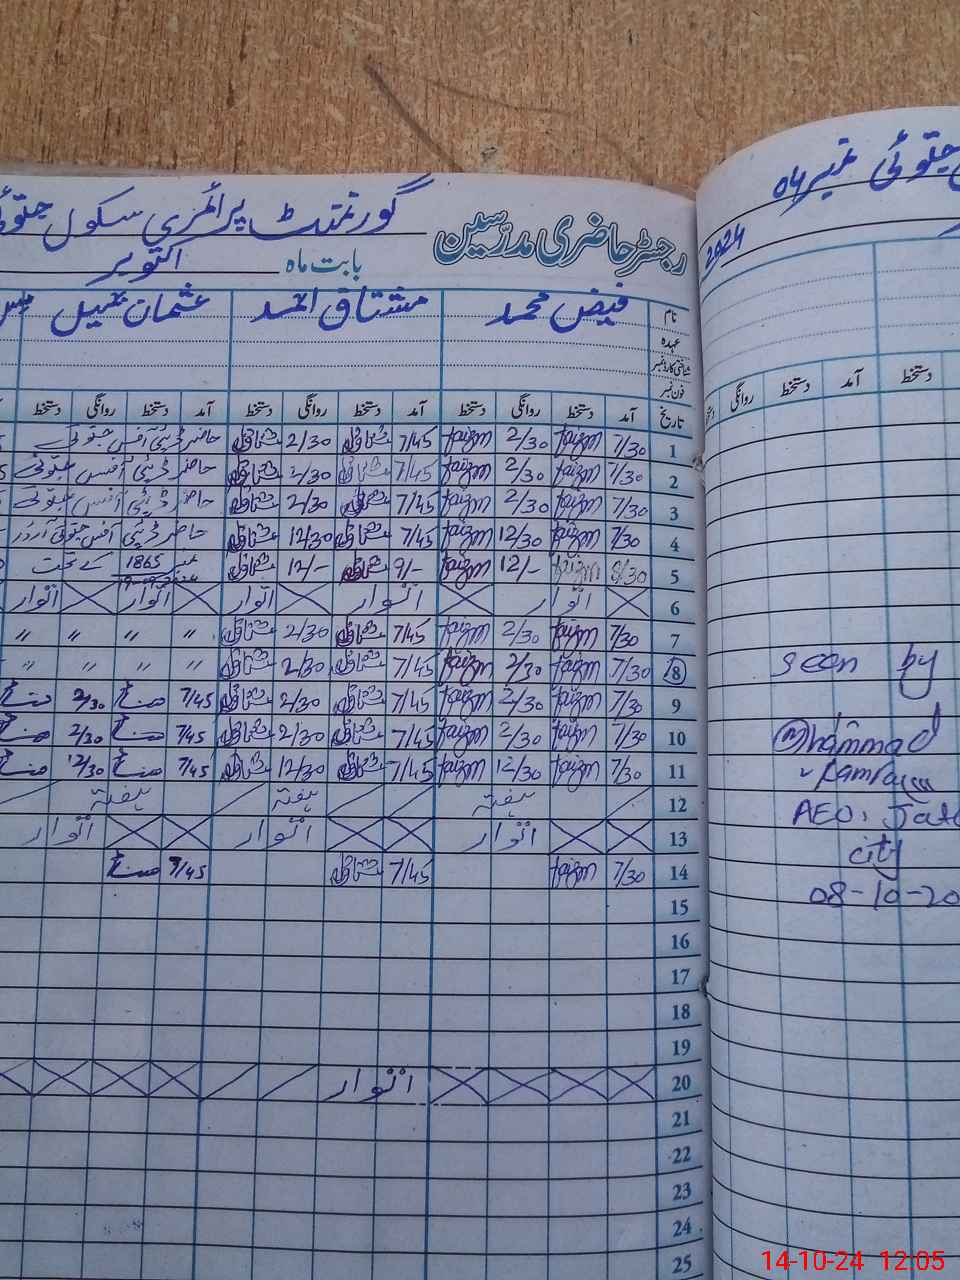 گورنمنٹ پرائمری سکول جتوئی نمبر 04
رجسٹر حاضری مدرسین
بابت ماہ اکتوبر 2024
نام فیض محمد مشتاق احمد عثمان
عہدہ
شناختی کارڈ نمبر
فون نمبر
تاریخ آمد دستخط روانگی دستخط آمد دستخط روانگی دستخط آمد دستخط روانگی دستخط
1 7/30 faizm 2/30 faizm 7/45 مشتاق 2/30 مشتاق حاضر ڈپٹی آفس جتوئی
2 7/30 faizm 2/30 faizm 7/45 مشتاق 2/30 مشتاق حاضر ڈپٹی آفس جتوئی
3 7/30 faizm 2/30 faizm 7/45 مشتاق 2/30 مشتاق حاضر ڈپٹی آفس جتوئی
4 7/30 faizm 12/30 faizm 7/45 مشتاق 12/30 مشتاق حاضر ڈپٹی آفس جتوئی آرڈر
5 8/30 faizm 12/- faizm 9/- مشتاق 12/- مشتاق نمبر 1865 کے تحت
6 اتوار اتوار اتوار اتوار اتوار
7 7/30 faizm 2/30 faizm 7/45 مشتاق 2/30 مشتاق " " " "
8 7/30 faizm 2/30 faizm 7/45 مشتاق 2/30 مشتاق " " " "
9 7/30 faizm 2/30 faizm 7/45 مشتاق 2/30 مشتاق 7/45 2/30
10 7/30 faizm 2/30 faizm 7/45 مشتاق 2/30 مشتاق 7/45 2/30
11 7/30 faizm 12/30 faizm 7/45 مشتاق 12/30 مشتاق 7/45 12/30
12 ہفتہ ہفتہ ہفتہ
13 اتوار اتوار اتوار
14 7/30 faizm 7/45 مشتاق 7/45
15
16
17
18
19
20 اتوار
21
22
23
24
25
آمد دستخط روانگی
دستخط
seen by
Muhammad
Kamran
AEO, Jato
city
08-10-20
14-10-24 12:05